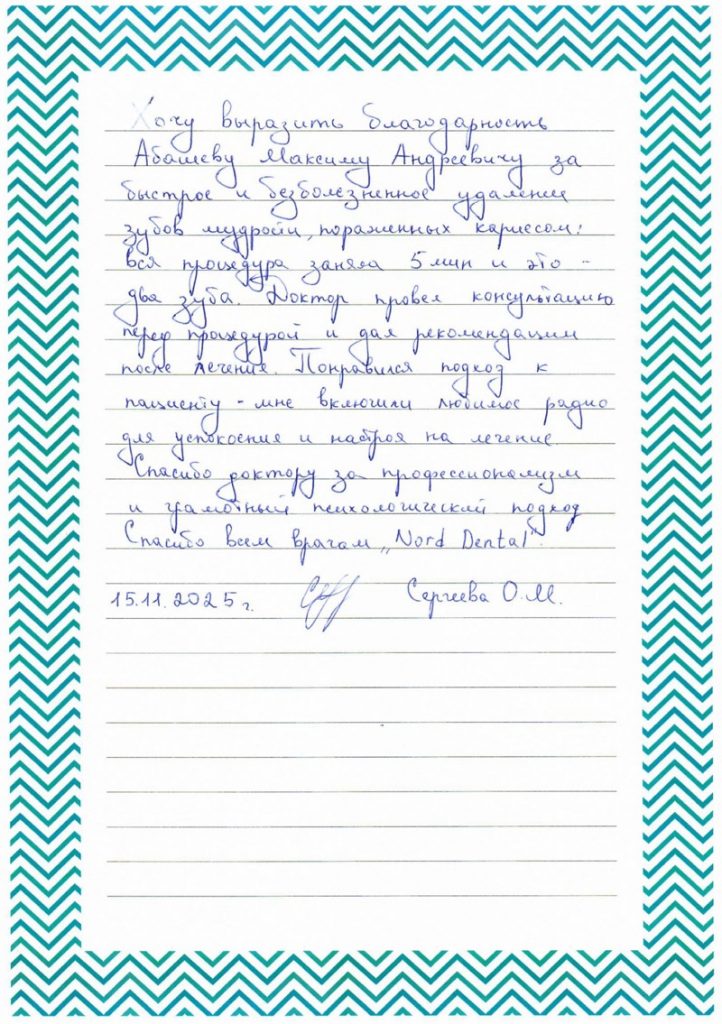 Хочу выразить благодарность
Абашеву Максиму Андреевичу за
быстрое и безболезненное удаление
зубов мудрости, пораженных кариесом:
вся процедура заняла 5 мин и это -
два зуба. Доктор провел консультацию
перед процедурой и дал рекомендации
после лечения. Понравился подход к
пациенту - мне включили любимое радио
для успокоения и настроя на лечение.
Спасибо доктору за профессионализм
и грамотный психологический подход
Спасибо всем врачам „Nord Dental".
15.11.2025 г. Сергеева О.М.